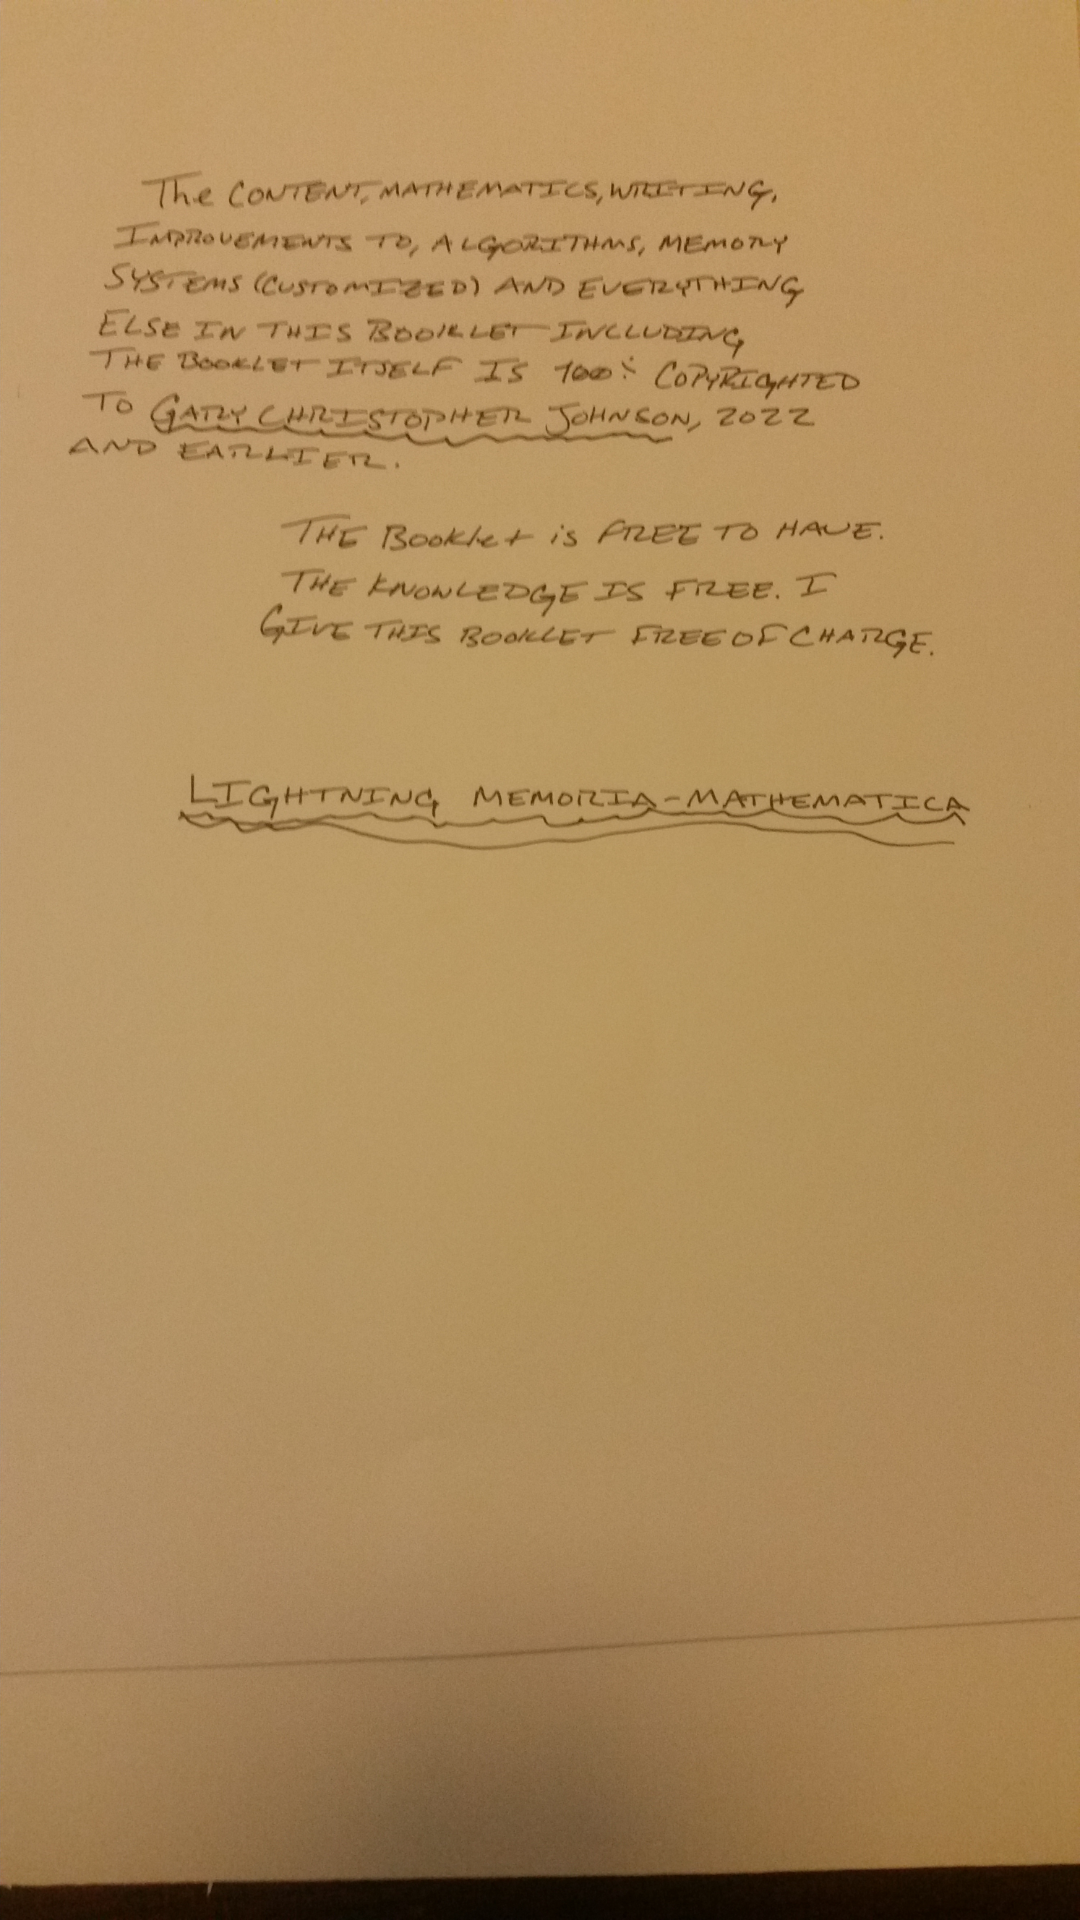 The CONTENT, MATHEMATICS, WRITING,
IMPROVEMENTS TO, ALGORITHMS, MEMORY
SYSTEMS (CUSTOMIZED) AND EVERYTHING
ELSE IN THIS BOOKLET INCLUDING
THE BOOKLET ITSELF IS 100% COPYRIGHTED
TO GARY CHRISTOPHER JOHNSON, 2022
AND EARLIER.
THE Booklet is FREE TO HAVE.
THE KNOWLEDGE IS FREE. I
GIVE THIS BOOKLET FREE OF CHARGE.
LIGHTNING MEMORIA-MATHEMATICA